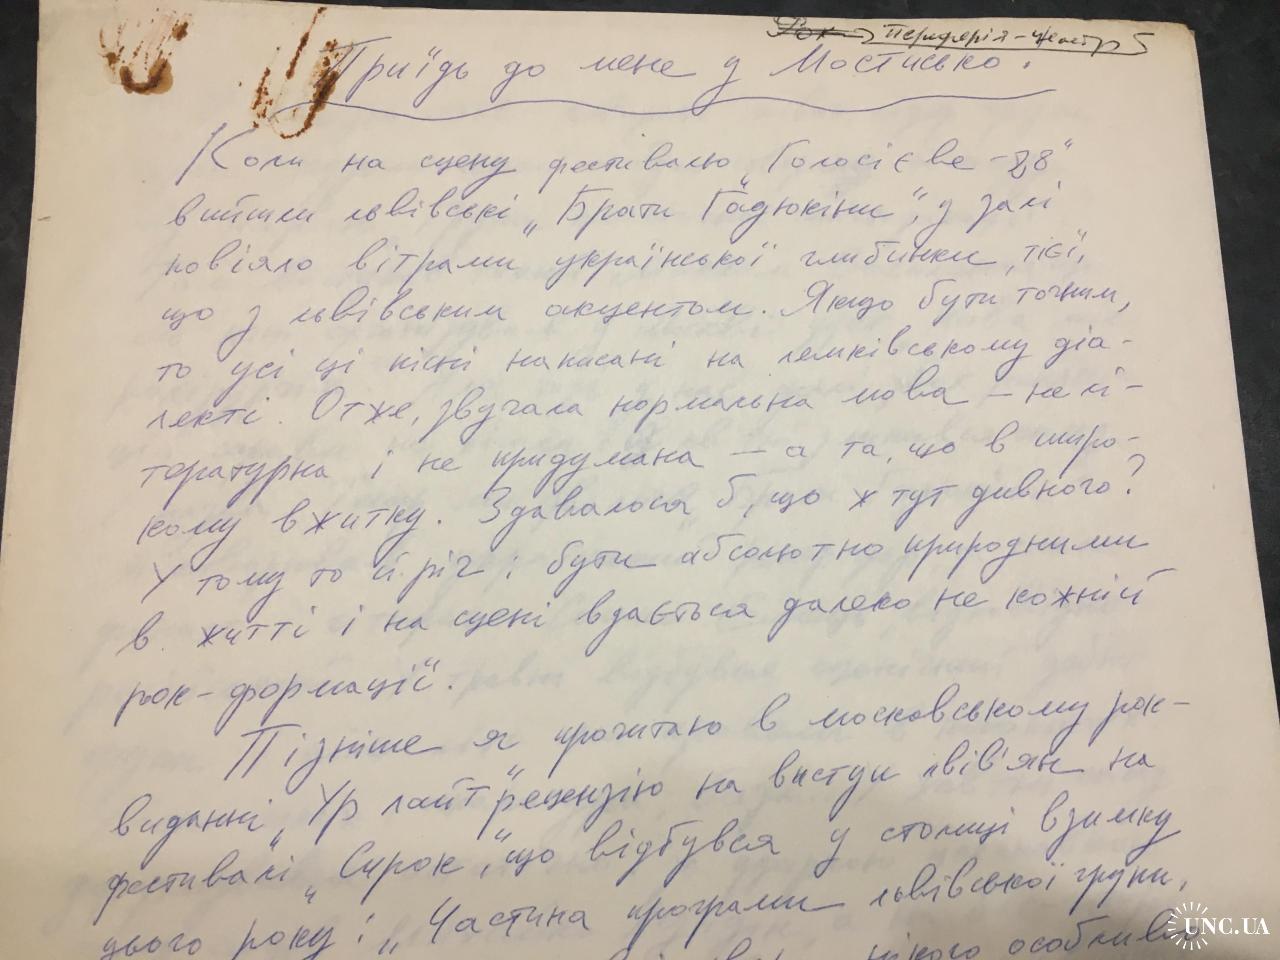 Рок периферія-центр
Приїдь до мене у Мостисько.
Коли на сцену фестивалю „Голосієве-88"
вийшли львівські „Брати Гадюкіни", у залі
повіяло вітрами української глибинки, тієї,
що з львівським акцентом. Якщо бути точним,
то усі ці пісні написані на лемківському діа-
лекті. Отже, звучала нормальна мова – не лі-
тературна і не придумана – а та, що в широ-
кому вжитку. Здавалося б, що ж тут дивного?
У тому то й річ: бути абсолютно природними
в житті і на сцені вдається далеко не кожній
рок-формації.
Пізніше я прочитаю в московському рок-
виданні „Ур лайт" рецензію на виступ львів'ян на
фестивалі „Сирок", що відбувся у столиці взимку
цього року: „Частина програми львівської групи,
нічого особливо
UNC.UA